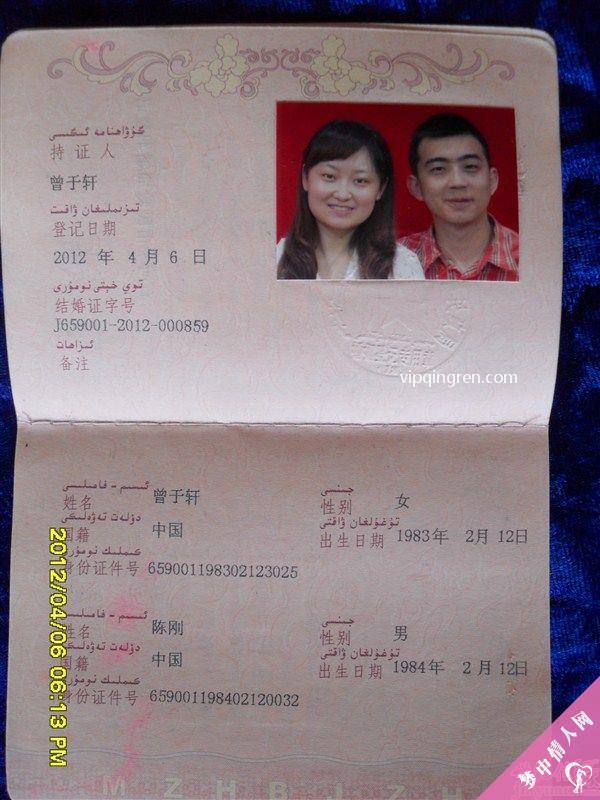 گۇۋاھنامە ئىگىسى
持证人
曾于轩
تىزىملىغان ۋاقىت
登记日期
2012 年 4 月 6 日
توي خېتى نومۇرى
结婚证字号
J659001-2012-000859
ئىزاھات
备注
vipqingren.com
ئىسىم - فامىلىسى
姓名 曾于轩
جىنسى
性别 女
دۆلەت تەۋەلىكى
国籍 中国
تۇغۇلغان ۋاقتى
出生日期 1983年 2月12日
كىملىك نومۇرى
身份证件号 659001198302123025
ئىسىم - فامىلىسى
姓名 陈刚
جىنسى
性别 男
دۆلەت تەۋەلىكى
国籍 中国
تۇغۇلغان ۋاقتى
出生日期 1984年 2月12日
كىملىك نومۇرى
身份证件号 659001198402120032
2012/04/06 06:13 PM
M Z H B J Z H
梦中情人网